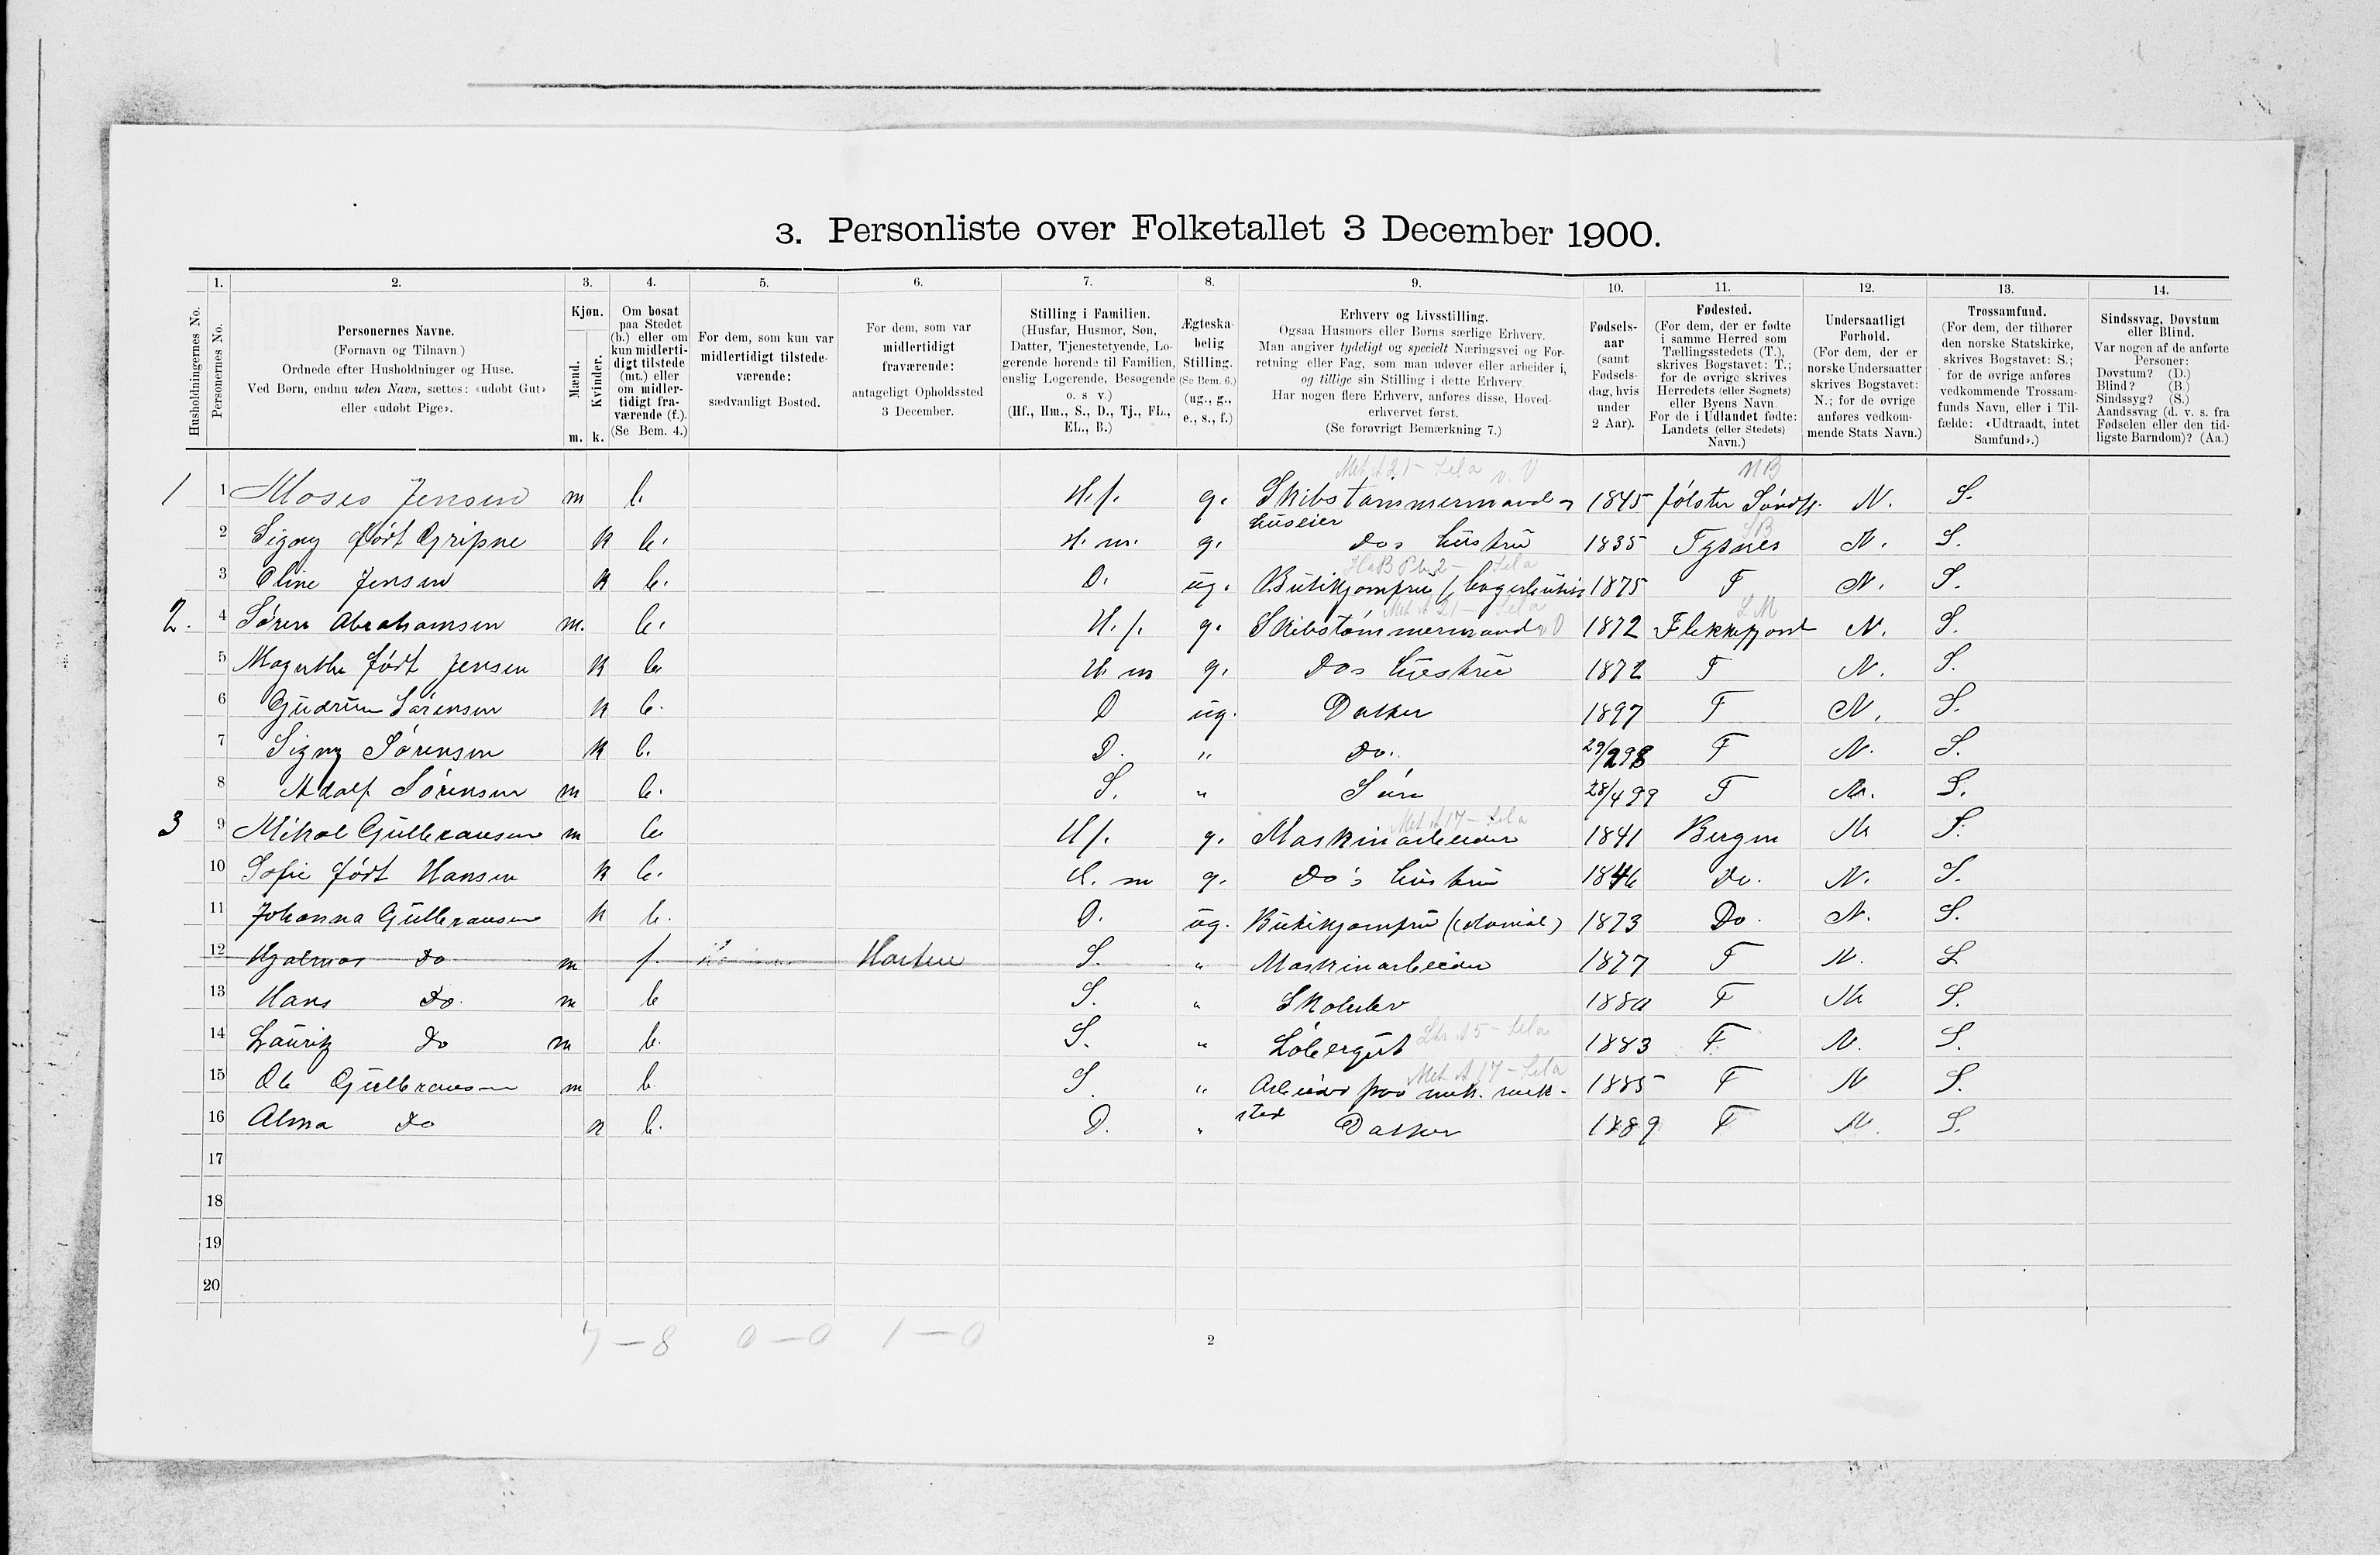 3. Personliste over Folketallet 3 December 1900.
Husholdningernes No.
1.
Personernes No.
2.
Personernes Navne.
(Fornavn og Tilnavn)
Ordnede efter Husholdninger og Huse.
Ved Børn, endnu uden Navn, sættes: «udøbt Gut»
eller «udøbt Pige».
3.
Kjøn.
Mænd.
Kvinder.
m. k.
4.
Om bosat
paa Stedet
(b.) eller om
kun midlerti-
digt tilstede
(mt.) eller
om midler-
tidigt fra-
værende (f.).
(Se Bem. 4.)
5.
For dem, som kun var
midlertidigt tilstede-
værende:
sædvanligt Bosted.
6.
For dem, som var
midlertidigt
fraværende:
antageligt Opholdssted
3 December.
7.
Stilling i Familien.
(Husfar, Husmor, Søn,
Datter, Tjenestetyende, Lo-
gerende hørende til Familien,
enslig Logerende, Besøgende
o. s v.)
(Hf., Hm., S., D., Tj., FL.,
EL., B.)
8.
Ægteska-
belig
Stilling.
(Se Bem. 6.)
(ug., g.,
e., s., f.)
9.
Erhverv og Livsstilling.
Ogsaa Husmors eller Børns særlige Erhverv.
Man angiver tydeligt og specielt Næringsvei og For-
retning eller Fag, som man udøver eller arbeider i,
og tillige sin Stilling i dette Erhverv
Har nogen flere Erhverv, anføres disse, Hoved-
erhvervet først.
(Se forøvrigt Bemærkning 7.)
10.
Fødsels-
aar
(samt
Fødsels-
dag, hvis
under
2 Aar).
11.
Fødested.
(For dem, der er fødte
i samme Herred som
Tællingsstedets (T.),
skrives Bogstavet: T.;
for de øvrige skrives
Herredets (eller Sognets)
eller Byens Navn
For de i Udlandet fødte:
Landets (eller Stedets)
Navn.)
12.
Undersaatligt
Forhold.
(For dem, der er
norske Undersaatter
skrives Bogstavet:
N.; for de øvrige
anføres vedkom-
mende Stats Navn.)
13.
Trossamfund.
(For dem, der tilhører
den norske Statskirke,
skrives Bogstavet: S.;
for de øvrige anføres
vedkommende Trossam-
funds Navn, eller i Til-
fælde: «Udtraadt, intet
Samfund».)
14.
Sindssvag, Døvstum
eller Blind.
Var nogen af de anførte
Personer:
Døvstum? (D.)
Blind? (B.)
Sindssyg? (S.)
Aandssvag (d. v. s. fra
Fødselen eller den tid-
ligste Barndom)? (Aa.)
Met A 21 - Lela NB
1 1 Moses Jensen m b. H.f. g. Skibstømmermand 1845 Jølster Søndfj. N. S.
huseier
2 Signy født Gripne k b. H. m. g. Dos hustru 1835 Tysnes SB N. S.
3 Oline Jensen k b. D. ug. Butikjomfru 1875 T N. S.
Met A 21 - Lela LM
2. 4 Søren Abrahamsen m. b. H. f. g. Skibstømmermand 1872 Flekkefjord N. S.
5 Magnthe født Jensen k b. H. m g. Dos hustru 1872 T N. S.
6 Gudrun Sørensen k b. D ug. Datter 1897 T N. S.
7 Signy Sørensen k b. D. " Do. 29/2 98 T N. S.
8 Adolf Sørensen m b. S. " Søn 28/4 99 T N. S.
Met A 17 - Lela
3 9 Mikal Gulbransen m b. Hf. g. Maskinarbeider 1841 Bergen N S.
10 Sofie født Hansen k b. H. m g. Do's hustru 1846 Do. N. S.
11 Johanna Gulbransen k b. D. ug. Butikjomfru (colonial) 1873 Do. N. S.
12 Hjalmar Do m f. Horten S. " Maskinarbeider 1877 T N. S
13 Hans Do. m b S. " Skoleelev 1880 T N S.
14 Lauritz Do m b. S. " Løbergut 1883 T N. S.
Met A 17 - Lela
15 Ole Gulbransen m b. S. " Arbeider paa mek. verk- 1885 T N S.
sted
16 Alma Do k b. D. " Datter 1889 T N. S.
17
18
19
20
7 - 8 0 - 0 1 - 0
2